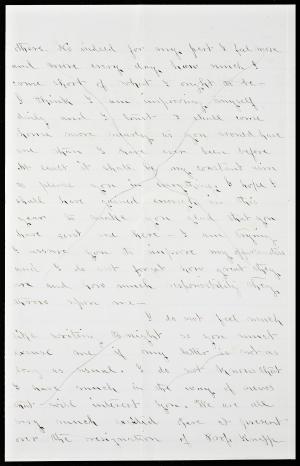 others. As indeed for my part I feel more
and more every day how much I
come short of what I ought to be -
I think I am improving myself
daily and I trust I shall come
home more nearly as you would have
me than I have ever been before
At least it shall be my constant aim
to please you in everything & hope I
shall have gained enough in this
year to make you glad that you
have sent me here - I am trying
I assure you to improve my opportunities
and I do not forget how great they
are and how much responsibility they
throw upon me -
I do not feel much
like writing to night so you must
excuse me if my letter is not as
long as usual. I do not know that
I have much in the way of news
that will interest you. We are all
very much excited here at present
over the resignation of Prof. Knapp